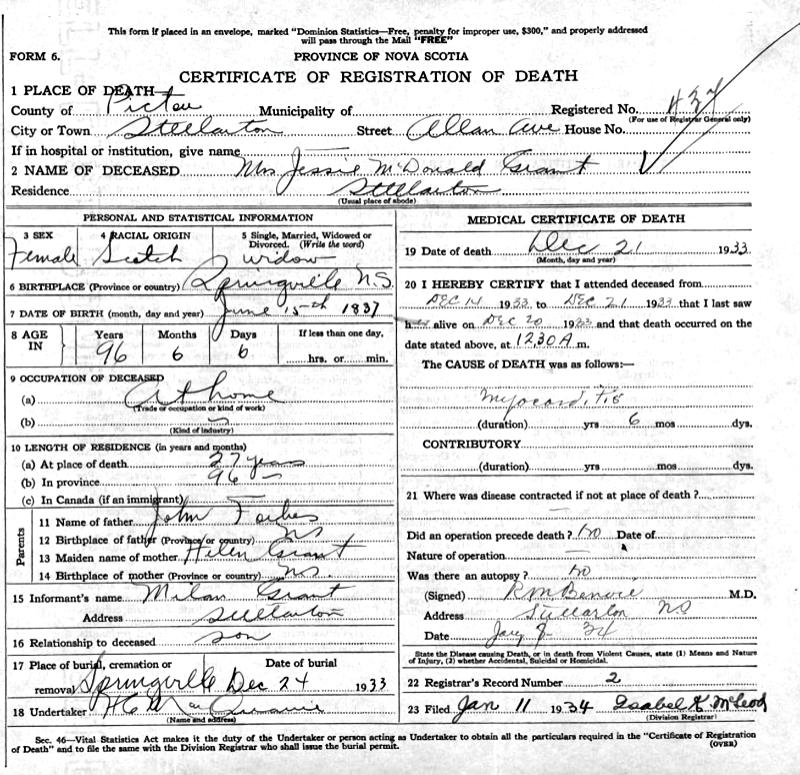 This form if placed in an envelope, marked "Dominion Statistics—Free, penalty for improper use, $300," and properly addressed
will pass through the Mail "FREE"
FORM 6.
PROVINCE OF NOVA SCOTIA
CERTIFICATE OF REGISTRATION OF DEATH
1 PLACE OF DEATH
County of Pictou Municipality of Registered No. 437
(For use of Registrar General only)
City or Town Stellarton Street Allan Ave House No.
If in hospital or institution, give name —
2 NAME OF DECEASED Mrs Jessie McDonald Grant
Residence Stellarton
(Usual place of abode)
PERSONAL AND STATISTICAL INFORMATION
3 SEX 4 RACIAL ORIGIN 5 Single, Married, Widowed or Divorced. (Write the word)
Female Scotch Widow
6 BIRTHPLACE (Province or country) Springville N.S.
7 DATE OF BIRTH (month, day and year) June 15th 1837
8 AGE IN Years Months Days If less than one day,
96 6 6 hrs. or min.
9 OCCUPATION OF DECEASED
(a) At home
(Trade or occupation or kind of work)
(b)
(Kind of industry)
10 LENGTH OF RESIDENCE (in years and months)
(a) At place of death 27 years
(b) In province 96 "
(c) In Canada (if an immigrant)
Parents
11 Name of father John Forbes
12 Birthplace of father (Province or country) NS
13 Maiden name of mother Helen Grant
14 Birthplace of mother (Province or country) NS.
15 Informant's name Milan Grant
Address Stellarton
16 Relationship to deceased son
17 Place of burial, cremation or Date of burial
removal Springville Dec 24 1933
18 Undertaker
(Name and address)
MEDICAL CERTIFICATE OF DEATH
19 Date of death Dec 21 1933
(Month, day and year)
20 I HEREBY CERTIFY that I attended deceased from
DEC 14 1933 to DEC 21 1933 that I last saw
h alive on DEC 20 1933 and that death occurred on
date stated above, at 12.30 A m.
The CAUSE of DEATH was as follows:—
Myocarditis
(duration) yrs 6 mos dys.
CONTRIBUTORY
(duration) yrs mos dys.
21 Where was disease contracted if not at place of death ?
—
Did an operation precede death ? No Date of
Nature of operation —
Was there an autopsy ? No
(Signed) M.D.
Address Stellarton NS
Date Jany 8 34
State the Disease causing Death, or in death from Violent Causes, state (1) Means and Nature
of Injury, (2) whether Accidental, Suicidal or Homicidal.
22 Registrar's Record Number 2
23 Filed Jan 11 1934 Isabel K McLeod
(Division Registrar)
Sec. 46—Vital Statistics Act makes it the duty of the Undertaker or person acting as Undertaker to obtain all the particulars required in the "Certificate of Registration
of Death" and to file the same with the Division Registrar who shall issue the burial permit.
(OVER)